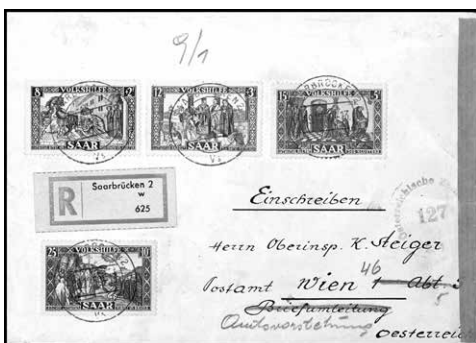 9/1
8 VOLKSHILFE 2
SAAR
12 VOLKSHILFE 3
SAAR
15 VOLKSHILFE 5
SAAR
R
Saarbrücken 2
w
625
25 VOLKSHILFE 10
SAAR
Einschreiben
127
Herrn Oberinsp. K. Steiger
46
Postamt Wien 1 Abt. 5
Briefumleitung
Amtsvorstehung
Oesterreich